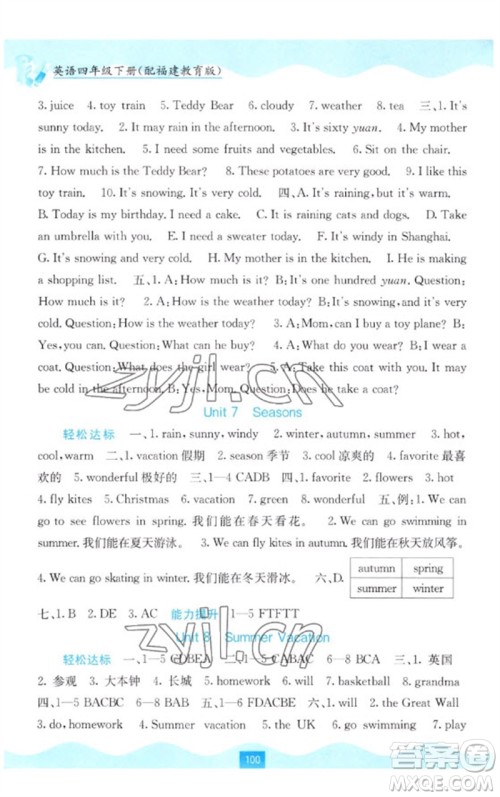 英语四年级下册(配福建教育版)
3. juice 4. toy train 5. Teddy Bear 6. cloudy 7. weather 8. tea 三、1. It's
sunny today. 2. It may rain in the afternoon. 3. It's sixty yuan. 4. My mother
is in the kitchen. 5. I need some fruits and vegetables. 6. Sit on the chair.
7. How much is the Teddy Bear? 8. These potatoes are very good. 9. I like this
toy train. 10. It's snowing. It's very cold. 四、A. It's raining, but it's warm.
B. Today is my birthday. I need a cake. C. It is raining cats and dogs. D. Take
an umbrella with you today. E. How is the weather today? F. It's windy in Shanghai.
G. It's snowing and very cold. H. My mother is in the kitchen. I. He is making
a shopping list. 五、1. A: How much is it? B: It's one hundred yuan. Question: How
much is it? 2. A: How is the weather today? B: It's snowing. It's very
cold. Question: How is the weather today? 3. A: Mom, can I buy a toy plane? B:
Yes, you can. Question: What can he buy? 4. A: What can I wear? B: Wear a
coat. Question: What does the girl wear? 5. A: Take this coat with you. It may
be cold in the afternoon. B: Yes, Mom. Question: Does he take a coat?
Unit 7 Seasons
轻松达标 一、1. rain, sunny, windy 2. winter, autumn, summer 3. hot,
cool, warm 二、1. vacation 假期 2. season 季节 3. cool 凉爽的 4. favorite 最喜
欢的 5. wonderful 极好的 三、1—4 CADB 四、1. winter 2. cool 3. hot
4. fly kites 5. Christmas 6. vacation 7. green 8. wonderful 五、例: 1. We can
go to see flowers in spring. 我们能在春天看花。 2. We can go swimming in
summer. 我们能在夏天游泳。 3. We can fly kites in autumn. 我们能在秋天放风筝。
4. We can go skating in winter. 我们能在冬天滑冰。 六、D.
autumn spring
summer winter
七、1. B 2. DE 3. AC 能力提升 1—5 FTFTT
Unit 8 Summer Vacation
轻松达标 一、1—5 CDBEA 二、1—5 CABAC 6—8 BCA 三、1. 英国
2. 参观 3. 大本钟 4. 长城 5. homework 6. will 7. basketball 8. grandma
四、1—5 BACBC 6—8 BAC 五、1—5 FDACBE 六、1. will 2. the Great Wall
3. do, homework 4. Summer vacation 5. the UK 6. go swimming 7. play
100
zyjl.cn
zyjl.cn
作业精灵